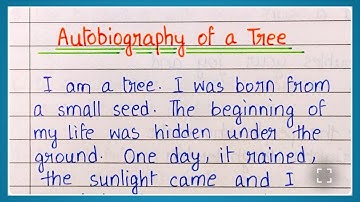 Autobiography of a Tree
I am a tree. I was born from
a small seed. The beginning of
my life was hidden under the
ground. One day, it rained,
the sunlight came and I